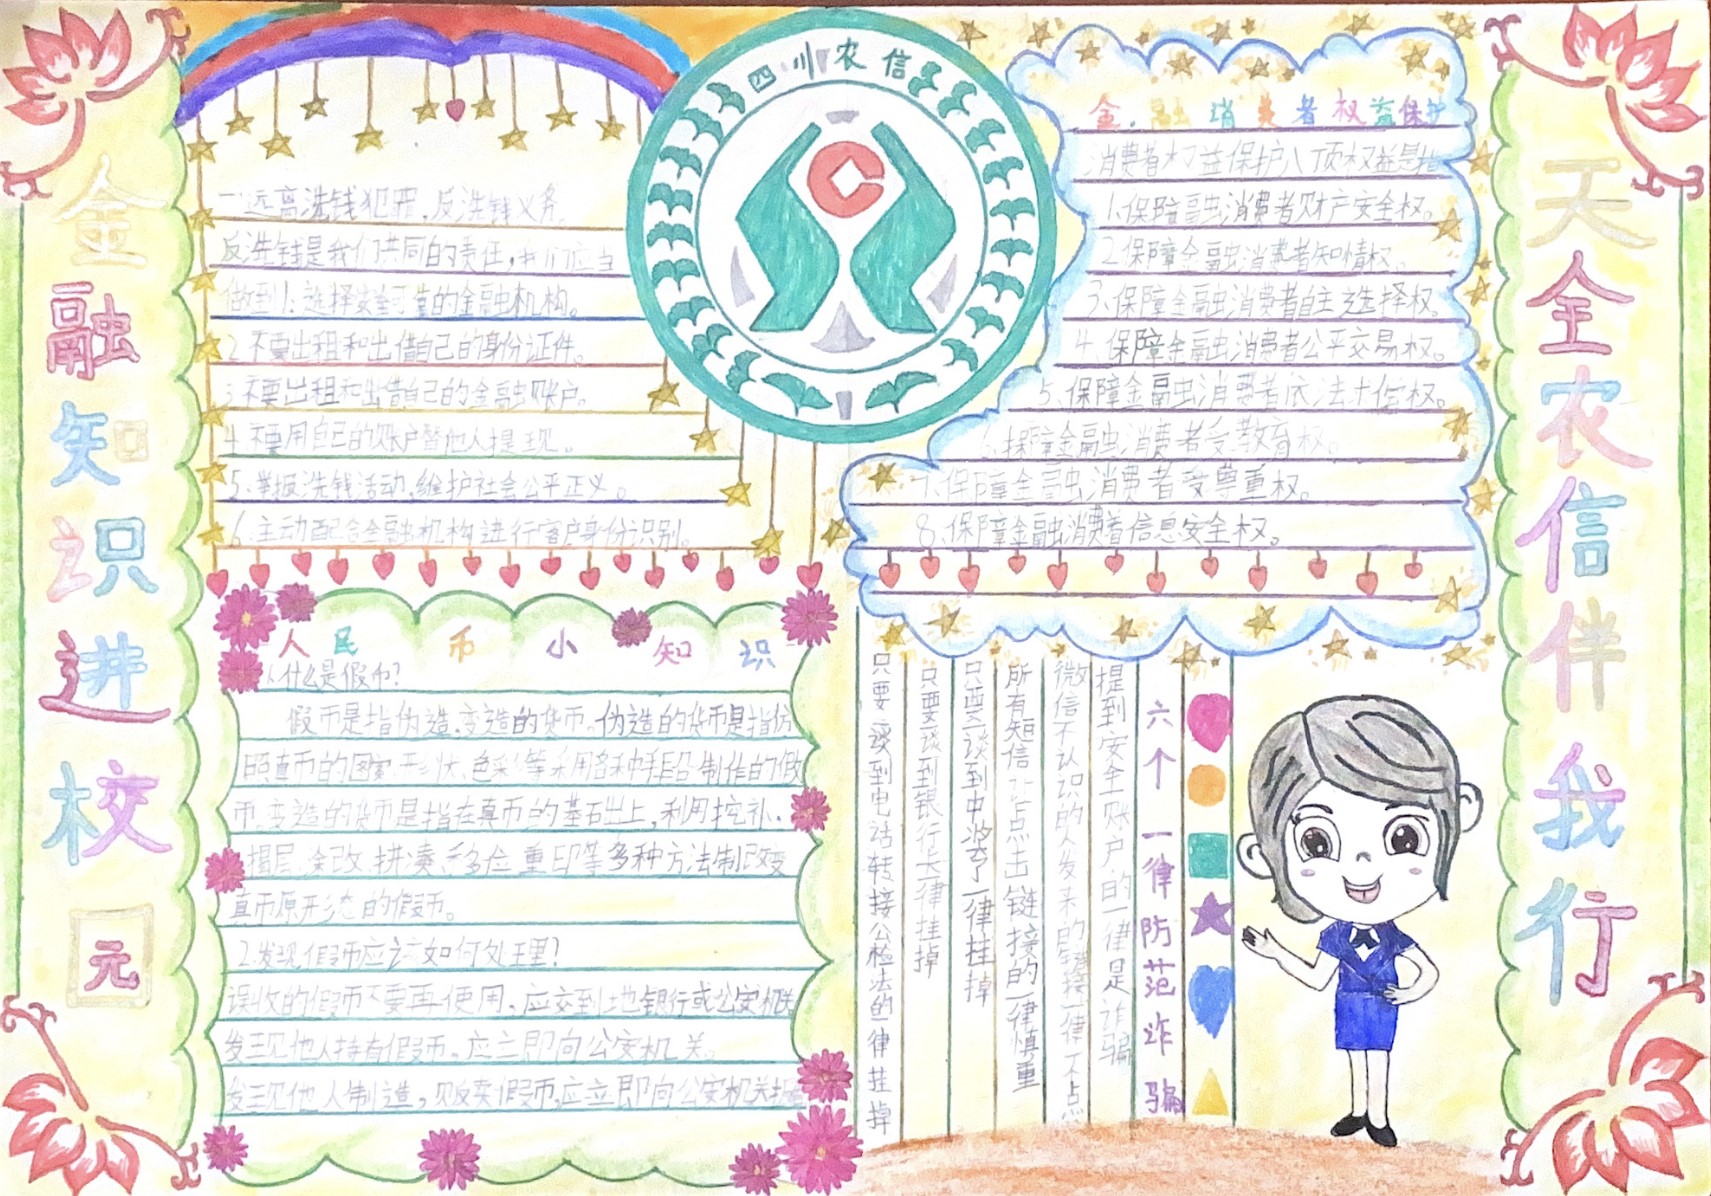 金融知识进校园
四川农信
一远离洗钱犯罪,反洗钱义务。
反洗钱是我们共同的责任,我们应当
做到1.选择安全可靠的金融机构。
2.不要出租和出借自己的身份证件。
3.不要出租和出借自己的金融账户。
4.不要用自己的账户替他人提现。
5.举报洗钱活动,维护社会公平正义。
6.主动配合金融机构进行客户身份识别。
金融消费者权益保护
消费者权益保护八项权益是指
1.保障金融消费者财产安全权。
2.保障金融消费者知情权。
3.保障金融消费者自主选择权。
4.保障金融消费者公平交易权。
5.保障金融消费者依法求偿权。
6.保障金融消费者受教育权。
7.保障金融消费者受尊重权。
8.保障金融消费者信息安全权。
人民币小知识
1.什么是假币?
假币是指伪造、变造的货币。伪造的货币是指仿
照真币的图案、形状、色彩等采用各种手段制作的假
币,变造的货币是指在真币的基础上,利用挖补、
揭层、涂改、拼凑、移位、重印等多种方法制改变
真币原形态的假币。
2.发现假币应该如何处理?
误收的假币不要再使用,应交到地银行或公安机关
发现他人持有假币,应立即向公安机关。
发现他人制造,贩卖假币,应立即向公安机关报
六个一律防范诈骗
提到安全账户的一律是诈骗
微信不认识的人发来的链接一律不点
所有短信让点击链接的一律慎重
只要谈到中奖了一律挂掉
只要谈到银行卡一律挂掉
只要谈到电话转接公检法的一律挂掉
天全农信伴我行